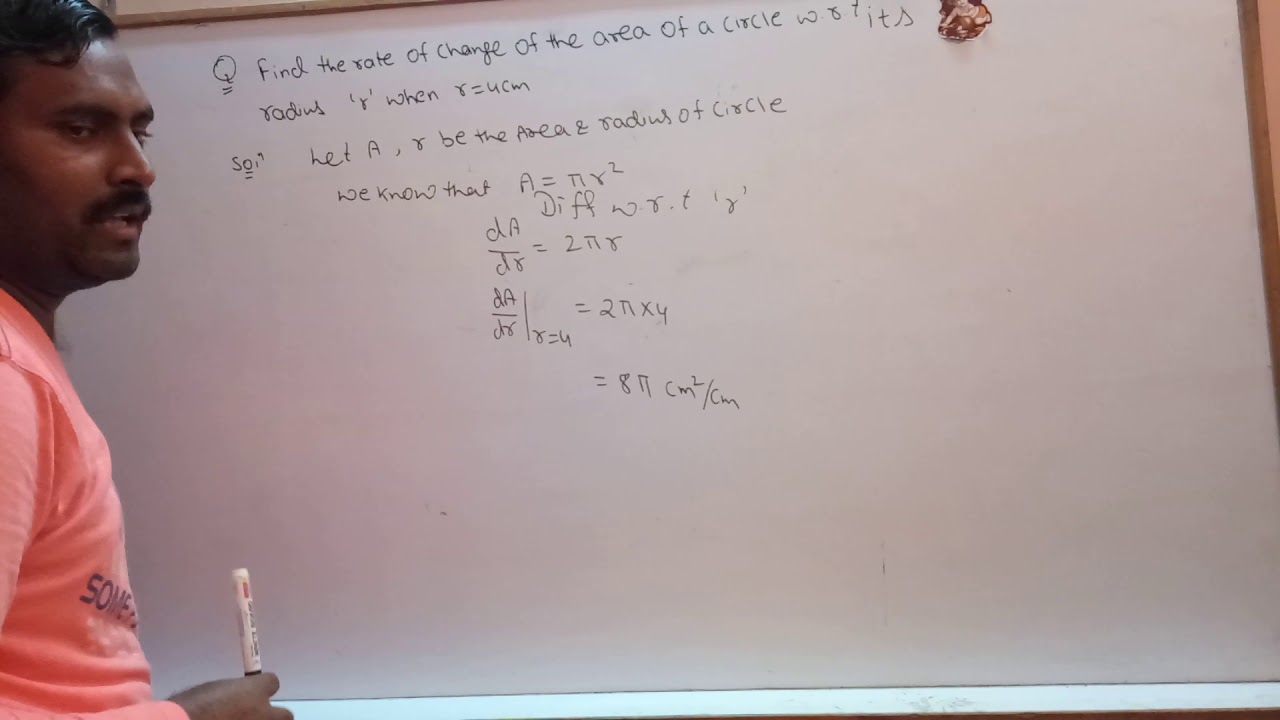 Q Find the rate of change of the area of a circle w r t its
radius 'r' when r=4cm
Sol" Let A, r be the Area & radius of circle
we know that A = πr²
Diff w.r.t 'r'
dA/dr = 2πr
dA/dr|r=4 = 2π×4
= 8π cm²/cm